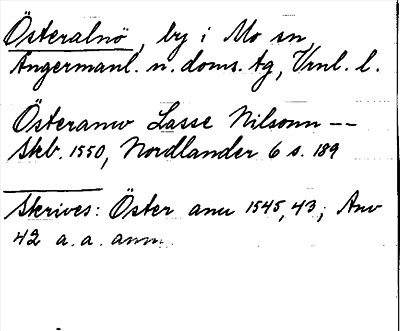 Österalnö, by i Mo sn,
Ångermanl. n. doms. tg, Vrnl. l.
Österanw Lasse Nilsonn --
Skb. 1550, Nordlander 6 s. 189
Skrives: Öster anu 1545, 43; Anv
42 a. a. anm.